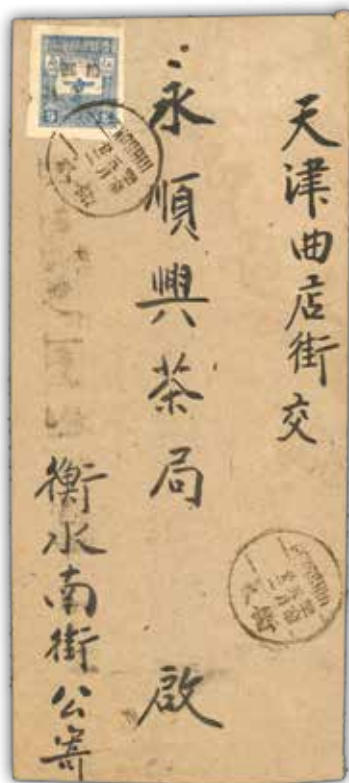 天津曲店街交
永順興茶局　啟
衡水南街公寄